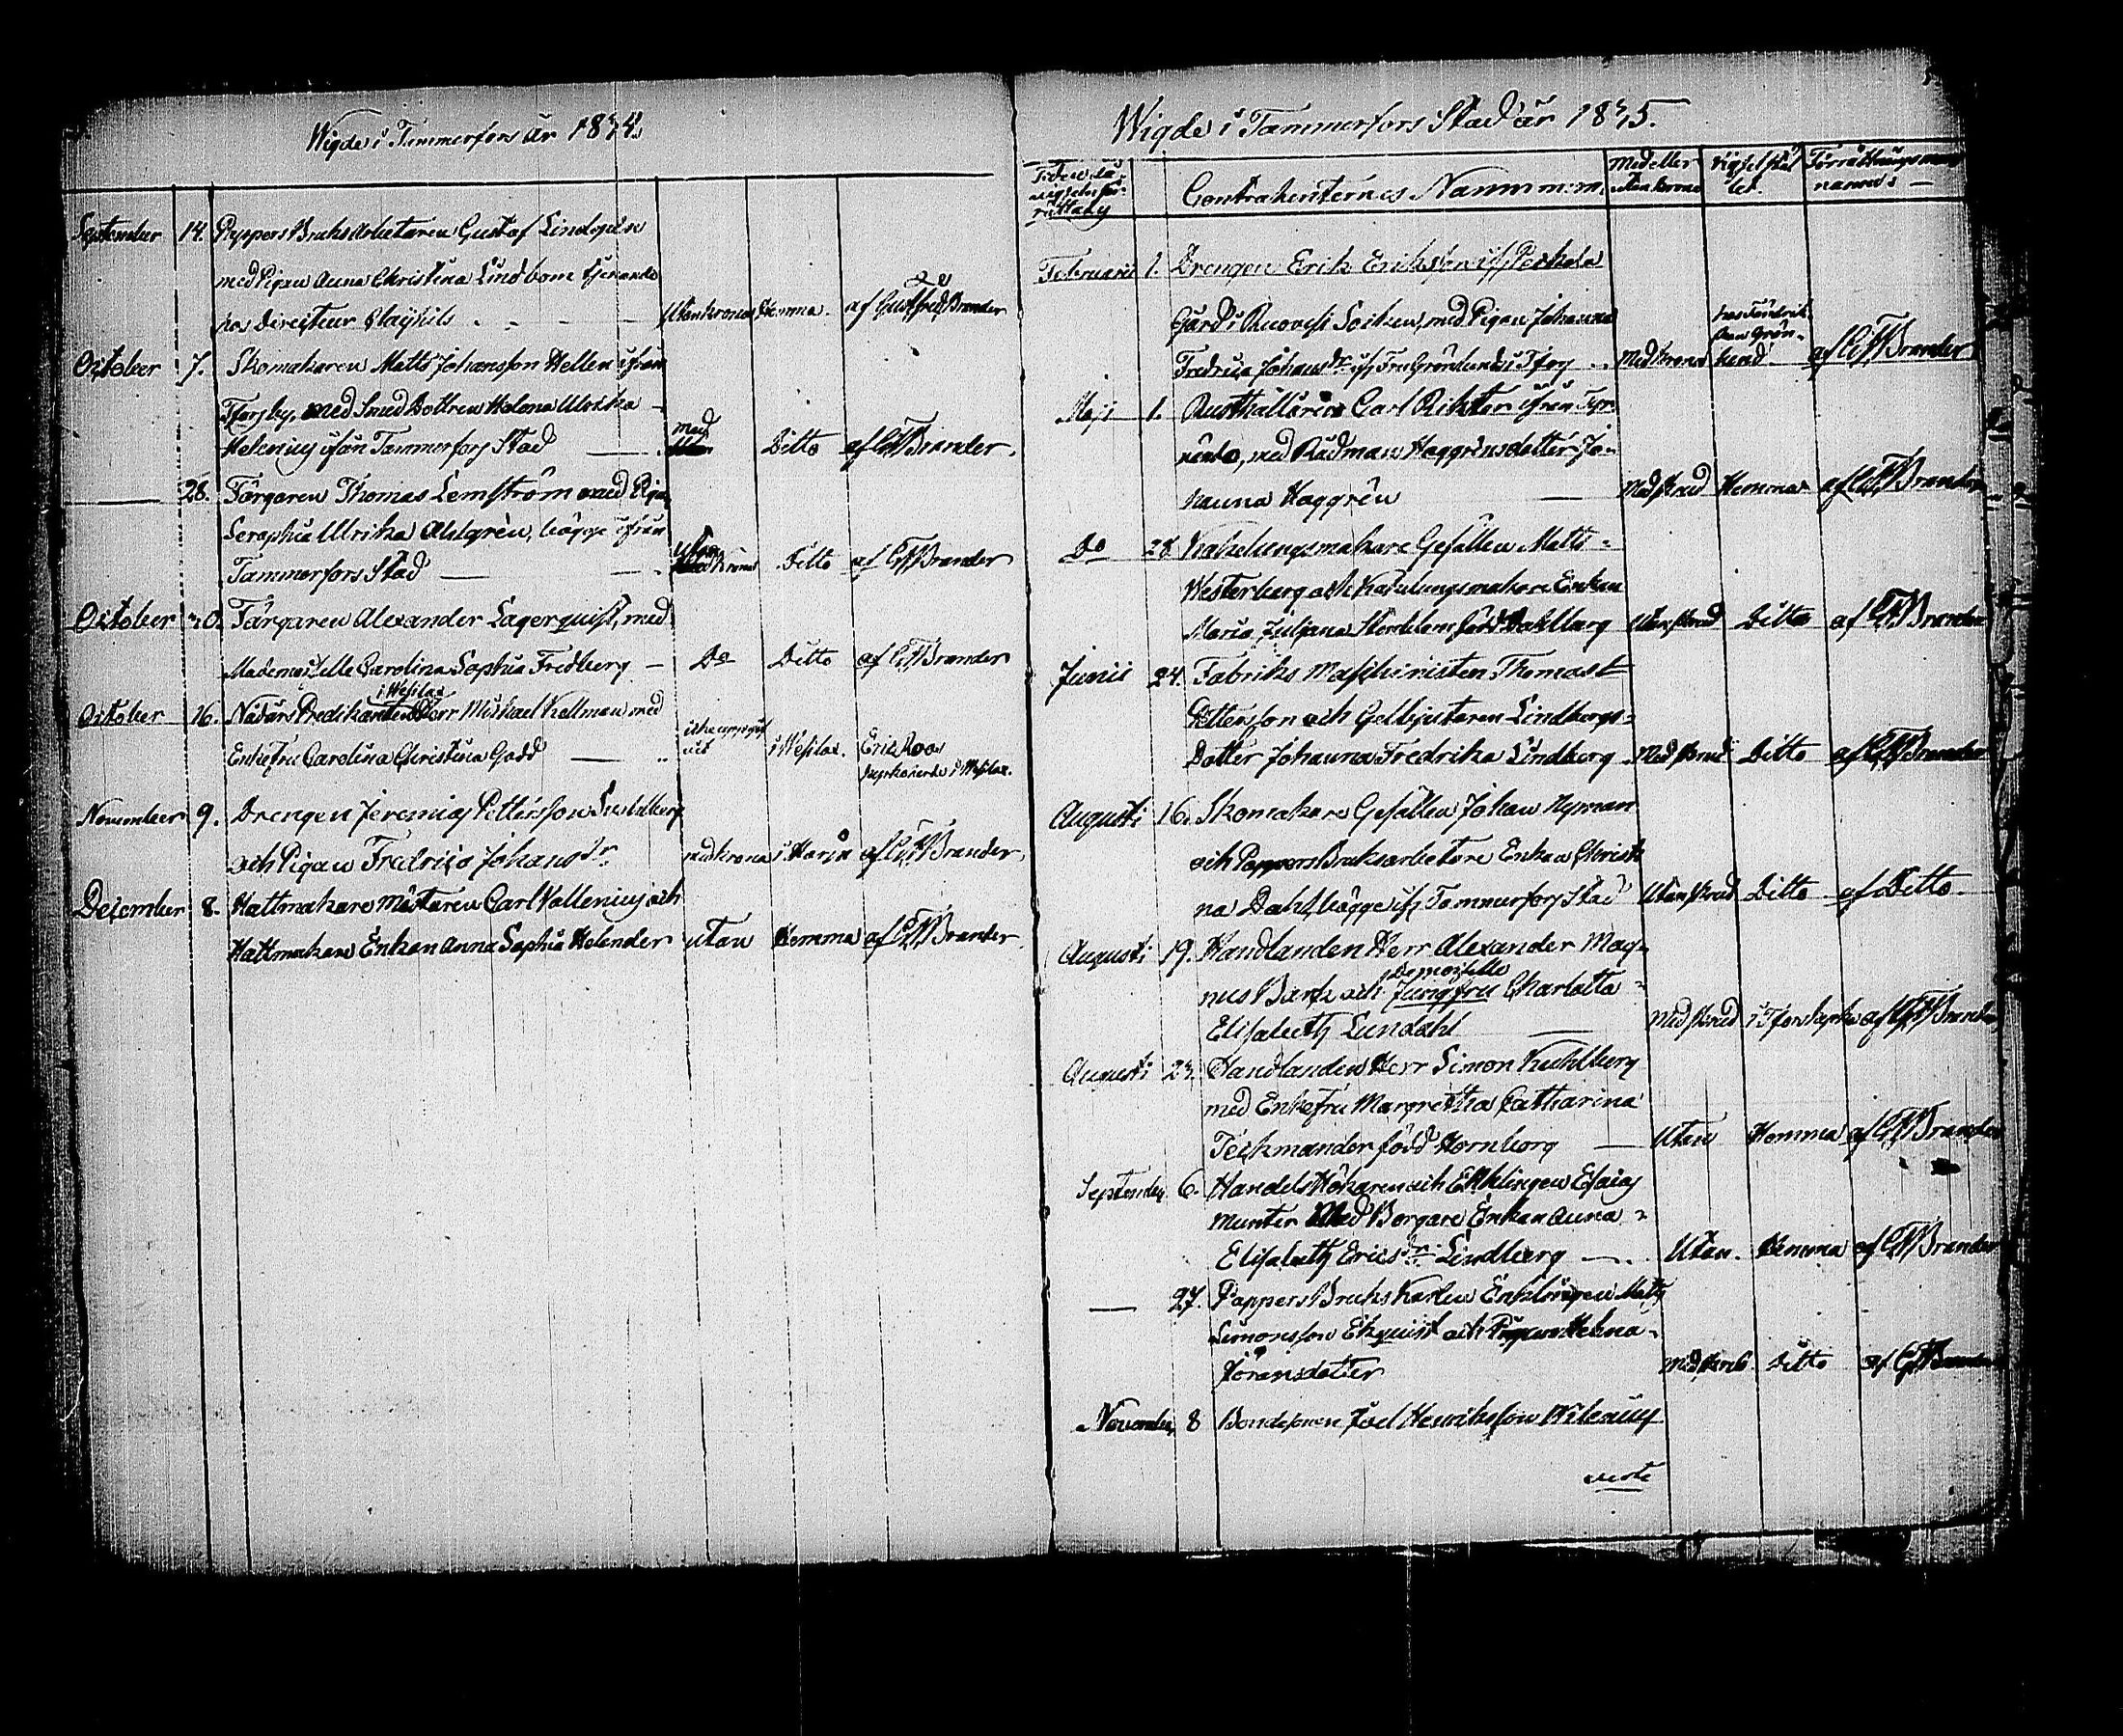 Wigde i Tammerfors år 1834.
September 14. Pappers Bruks Arbetaren Gustaf Lindqvist
med Pigan Anna Christina Lindbom tjenande
hos Directeur Utan krona Hemma. af Gust Fred Brander
October 7. Skomakaren Matts Johansson Hellen ifrån
med Smed Dottren Helena Ulrika
Helenius ifrån Tammerfors Stad med Ditto af GFBrander.
28. Färgaren Thomas Lemström med Pigan
Seraphia Ulrika Ahlgrén, bägge ifrån
Tammerfors Stad Utan krona Ditto af GFBrander
October 30. Färgaren Alexander Lagerquist, med
Mademoiselle Carolina Sophia Fredberg Do Ditto af GFBrander
i Wesilax
October 16. Nådårs Predikanten Herr Michael Kellman med
Enkefru Carolina Christina Gadd i Wesilax. Eric Roos
Kyrkoherde i Wesilax.
November 9. Drengen Jeremias Pettersson
och Pigan Fredrica Johansdr med krona i af GFBrander.
December 8. Hattmakare Mästaren Carl Vallenius och
Hattmakare Enkan Anna Sophia Helander utan Hemma af GFBrander.
Wigde i Tammerfors Stad år 1835.
Tiden då vigseln förrättats Contrahenternes Namn m:m. Med eller utan krona Vigselstället Förrättningsmans namn
Februarii 1. Drengen Erik Eriksson ifs Perkala
Gård i Ruovesi Socken, med Pigan Johanna hos Grönlund
Fredrica Johansdr ifs Fru Grönlunds i Tfors Med krona af GFBrander
Maji 1. Rusthållaren Carl Rikter ifrån
med Rådman Haggréns dotter Jo-
hanna Haggrén Med krud Hemma af GFBrander
Do 28 Kakelungsmakare Gesällen Matts
Westerberg och Kakelungsmakare Enkan
Maria Juljana född Dahlberg Utan krud Ditto af GFBrander
Junii 24. Fabriks Maschinisten Thomas
Pettersson och Gelbgjutaren Lindbergs
Dotter Johanna Fredrika Lindberg Med krud Ditto af GFBrander
Augusti 16. Skomakare Gesällen Johan Nyman
och Pappers Bruksarbetare Enkan Christi
na Dahl, bägge ifs Tammerfors Stad Utan krud Ditto af Ditto
Augusti 19. Handlanden Herr Alexander Mag-
Demoiselle
nus Barck och Jungfru Charlotta
Elisabeth Lundahl Med krud i Tfors kyrka af GFBrander
Augusti 23. Handlanden Herr Simon Kuhlberg
med Enkefru Margretha Catharina
Teckmander född Hornborg Utan Hemma af GFBrander
September 6. Handels Hökaren och Enklingen Esaias
Munter Med Borgare Enkan Anna
Elisabeth Ericsdr Lindberg Utan. Hemma af GFBrander
27. Pappers Bruks Karlen Enklingen Matts
Simonsson Ekquist och Pigan Helena
Göransdotter Med krud Ditto af GFBrander
November 8 Bondesonen Joel Henriksson Wilenius